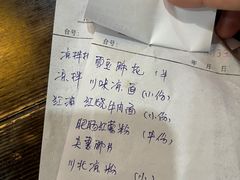 台号：
台号：
凉拌 雪豆蹄花 1半
凉拌 川味凉面(小份)
红油 红烧牛肉面(小份)
肥肠红薯粉(半份)
夹薯片
川北凉粉(小)